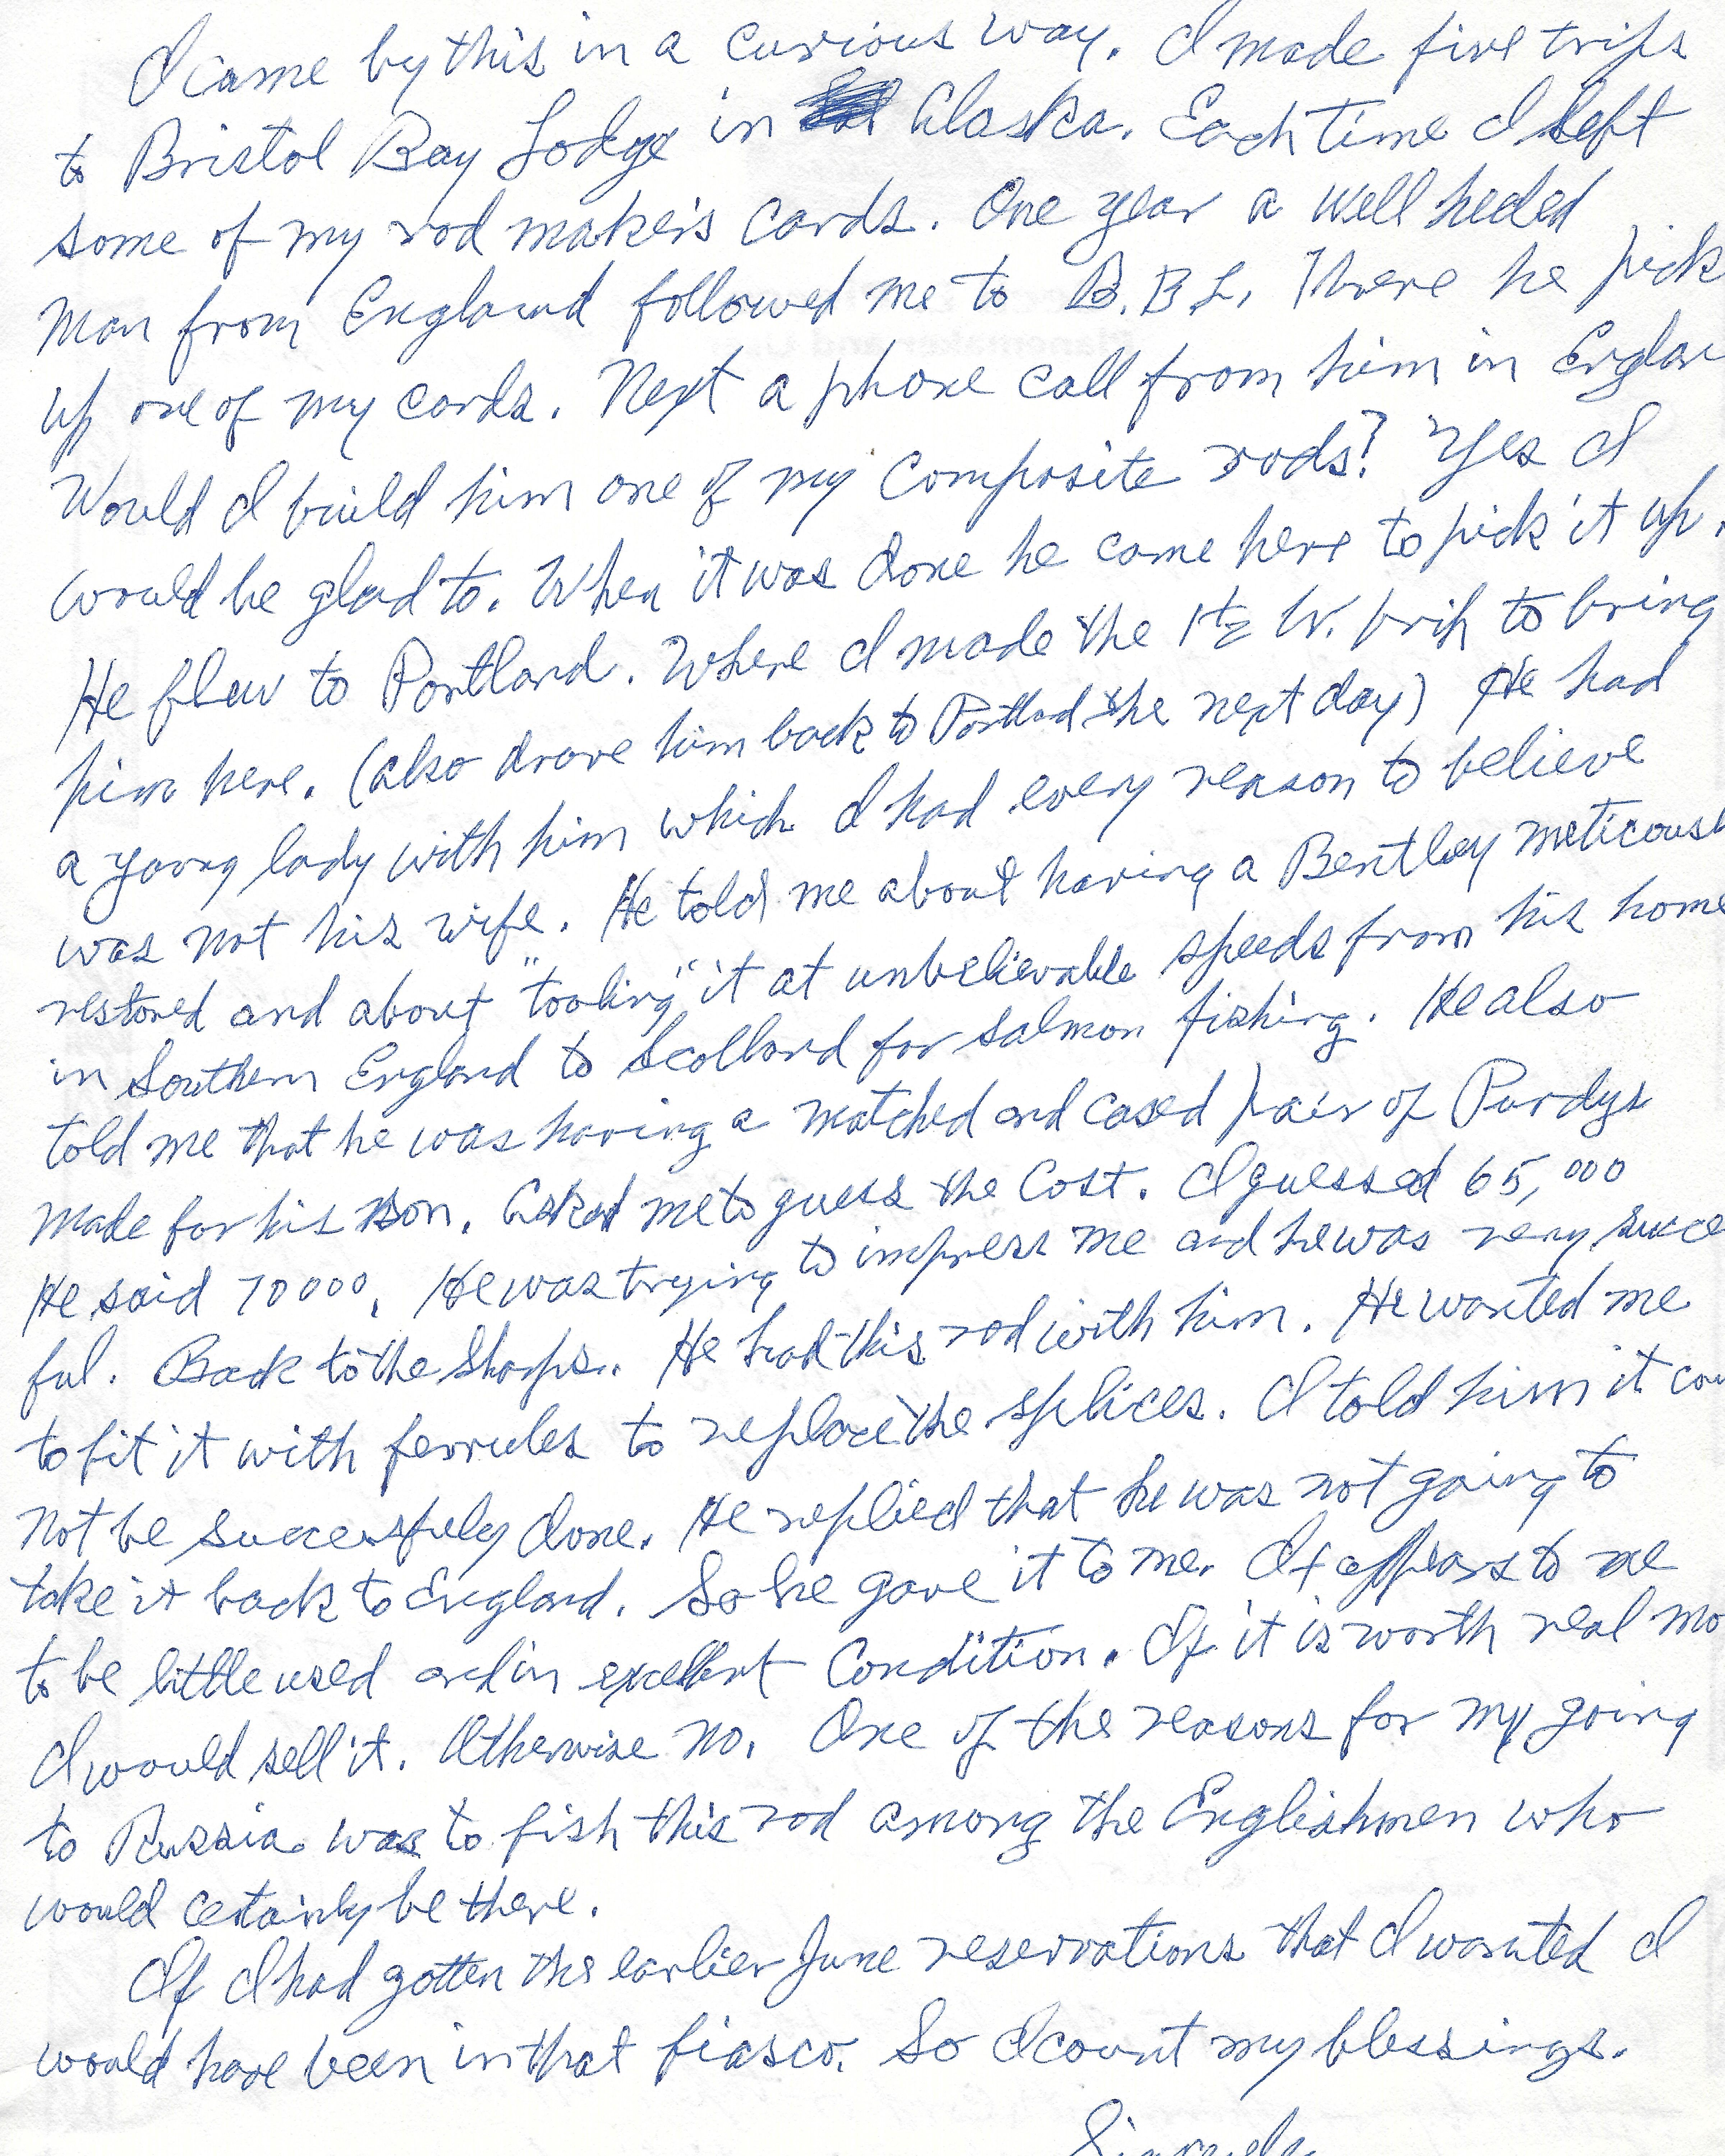 I came by this in a curious way. I made five trips
to Bristol Bay Lodge in Alaska. Each time I left
some of my rod maker's cards. One year a well heded
man from England followed me to B.B.L. There he pick
up one of my cards. Next a phone call from him in Englan
Would I build him one of my composite rods? Yes I
would be glad to. When it was done he came here to pick it up.
He flew to Portland. Where I made the 1½ hr. trip to bring
him here. (also drove him back to Portlad the next day) He had
a young lady with him which I had every reason to believe
was not his wife. He told me about having a Bentley meticous
restored and about "tooling" it at unbelievable speeds from his home
in Southern England to Scotland for salmon fishing. He also
told me that he was having a matched and cased pair of Purdys
made for his son. Asked me to guess the cost. I guessed 65,000
He said 70000. He was trying to impress me and he was very succe
ful. Back to the Sharps. He had this rod with him. He wanted me
to fit it with ferrules to replace the splices. I told him it cou
not be successfuly done. He replied that he was not going to
take it back to England. So he gave it to me. It appears to me
to be little used and in excellent condition. If it is worth real mo
I would sell it. Otherwise no. One of the reasons for my going
to Russia was to fish this rod among the Englishmen who
would certainly be there.
If I had gotten the earlier June reservations that I wanted I
would have been in that fiasco. So I count my blessings.